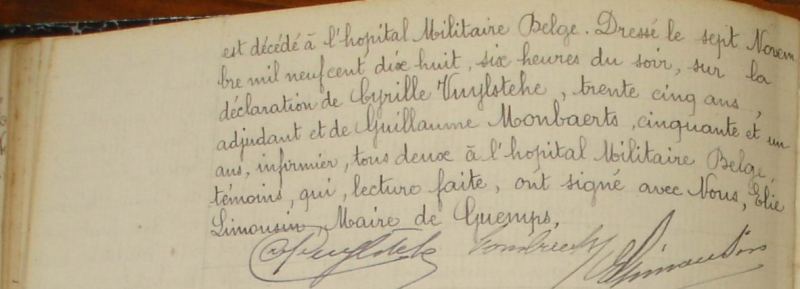 est décédé à l'hopital Militaire Belge. Dressé le sept Novem
bre mil neuf cent dix huit, six heures du soir, sur la
déclaration de Cyrille Vuylsteke, trente cinq ans,
adjudant et de Guillaume Monbaerts, cinquante et un
ans, infirmier, tous deux à l'hopital Militaire Belge,
témoins, qui, lecture faite, ont signé avec Nous, Elie
Limousin Maire de Guemps.
CVuylsteke ELimousin